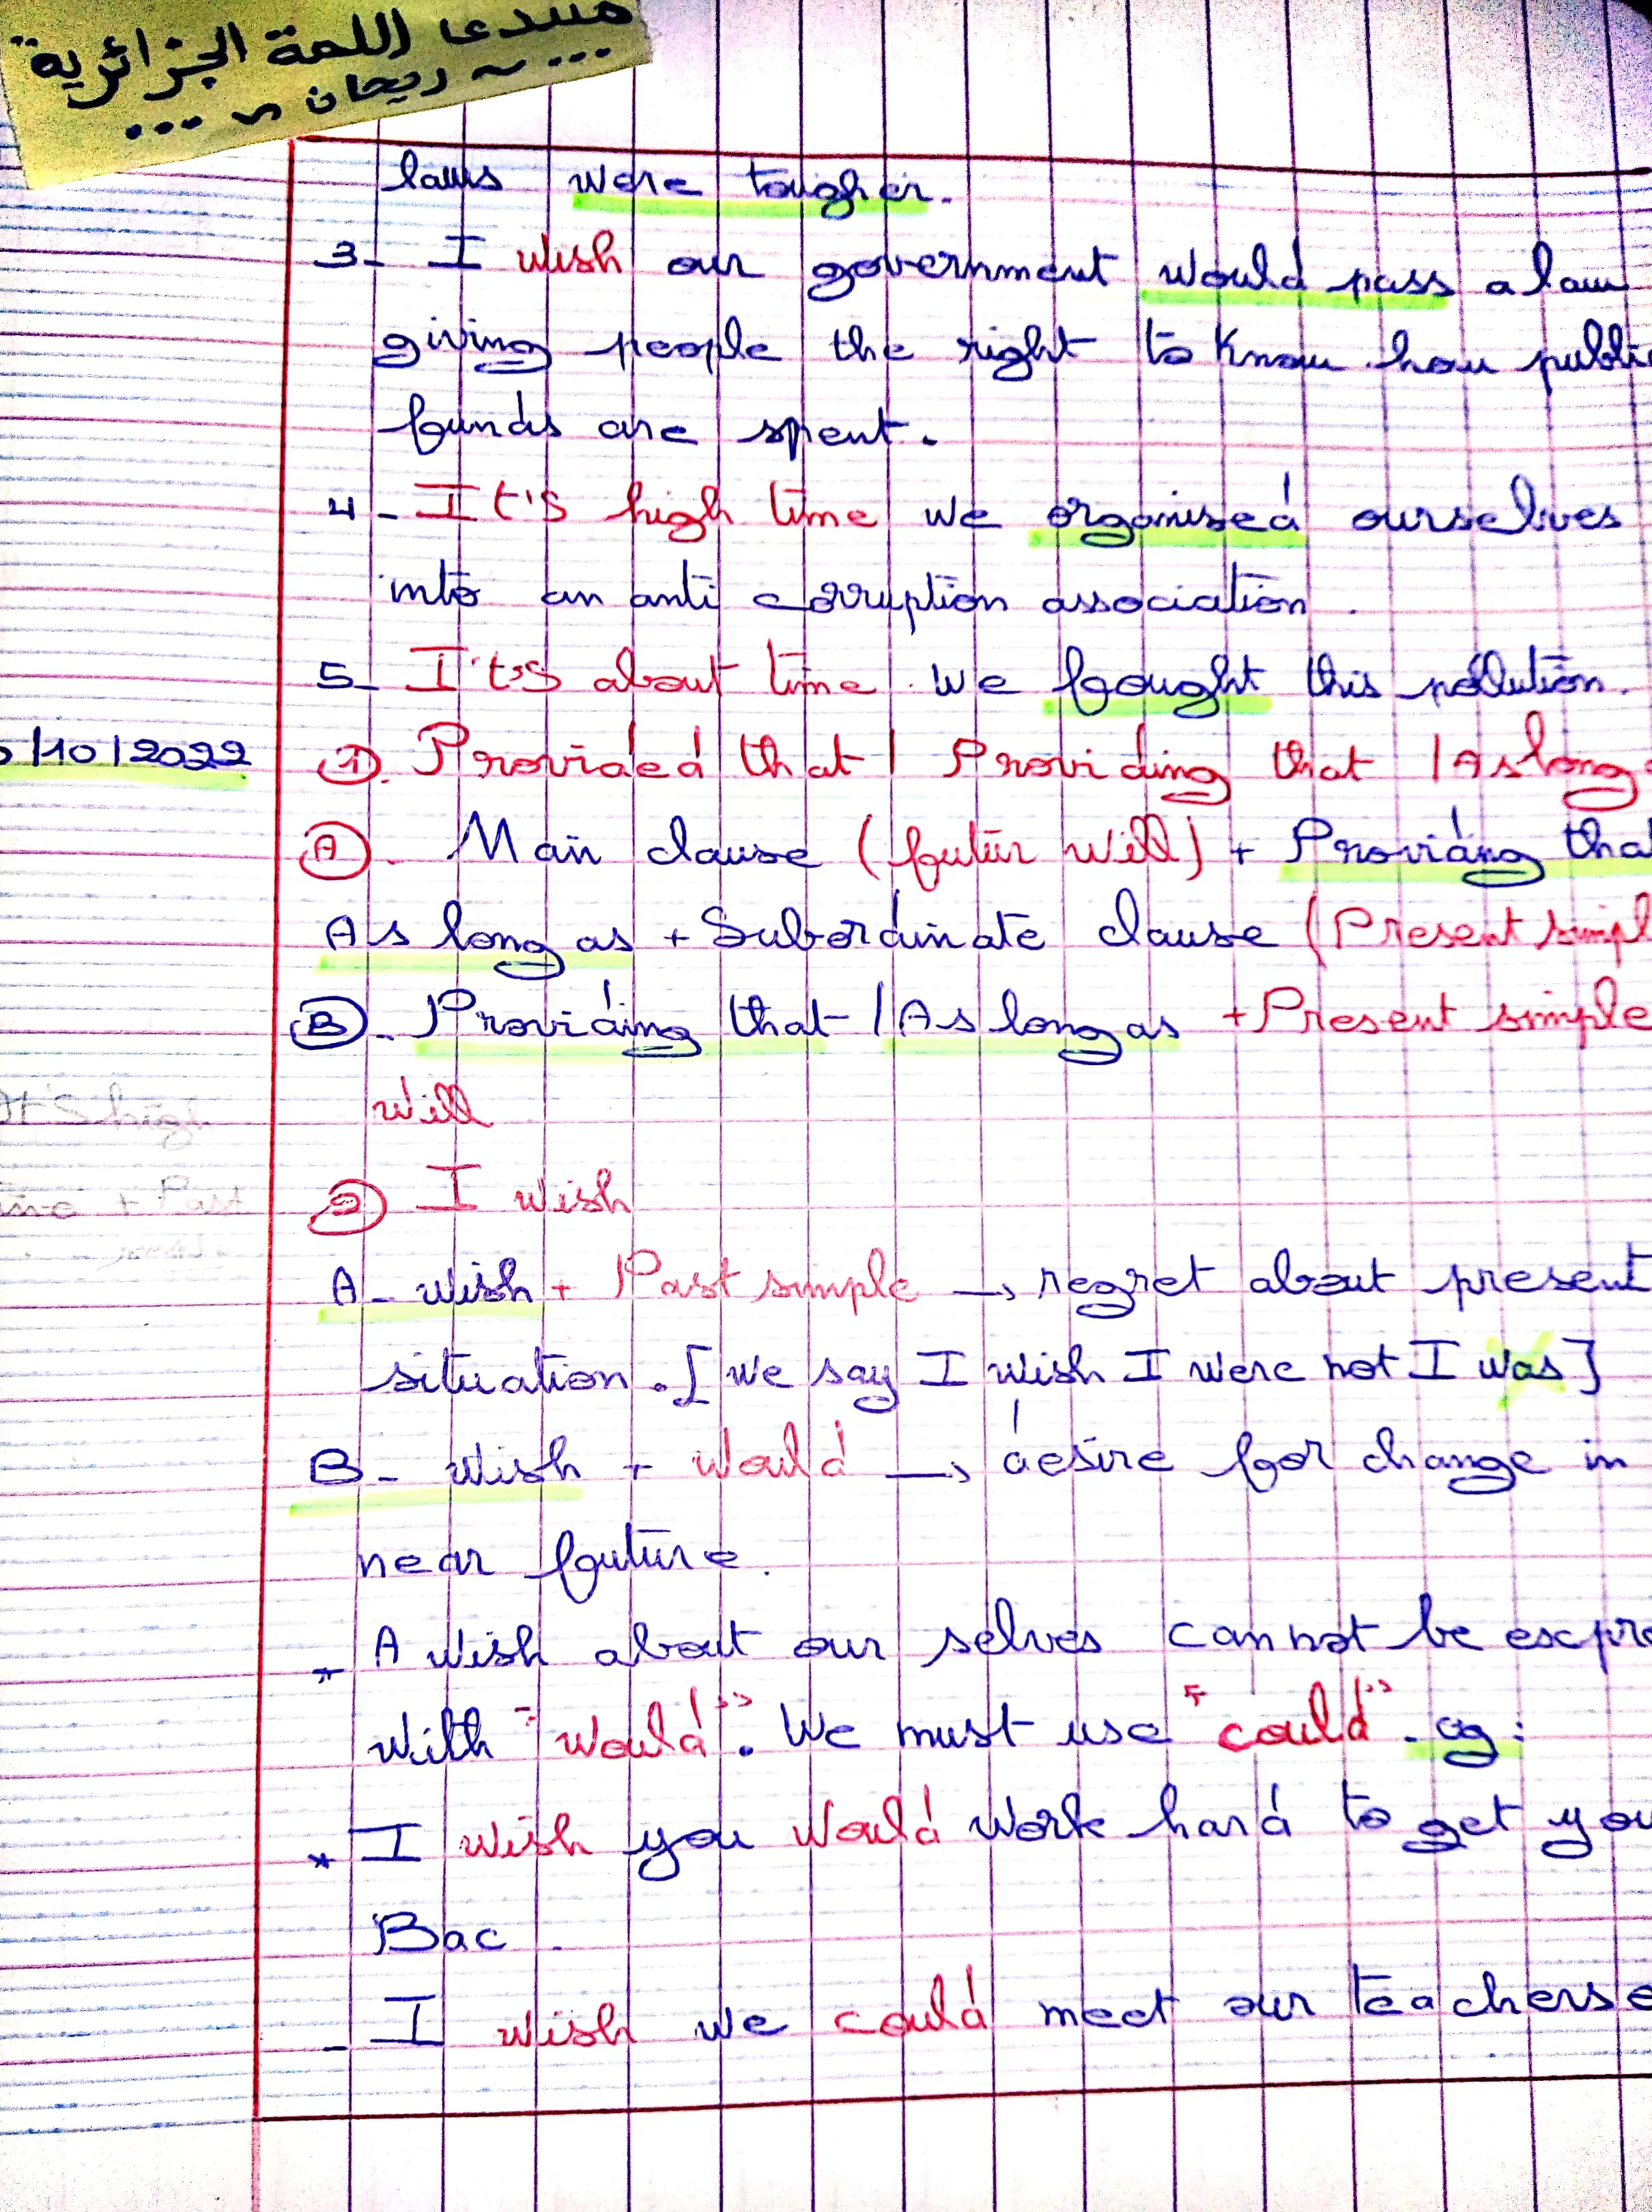 منتدى اللمة الجزائرية
... ~ ريحان ~ ...
laws were tougher.
3- I wish our government would pass a law
giving people the right to know how publi
funds are spent.
4- It's high time we organised ourselves
into an anti corruption association.
5- It's about time we fought this pollution.
/10/2022
①. Provided that / Providing that / As long
Ⓐ. Main clause (futur will) + Providing tha
As long as + Subordinate clause (Present simpl
Ⓑ. Providing that / As long as + Present simple
will
② I wish
A- wish + Past simple → regret about present
situation. [we say I wish I were not I was]
B- wish + would → desire for change in
near fouture.
* A wish about our selves cannot be expre
with "would". We must use "could". eg:
* I wish you would work hard to get you
Bac.
- I wish we could meet our teachers